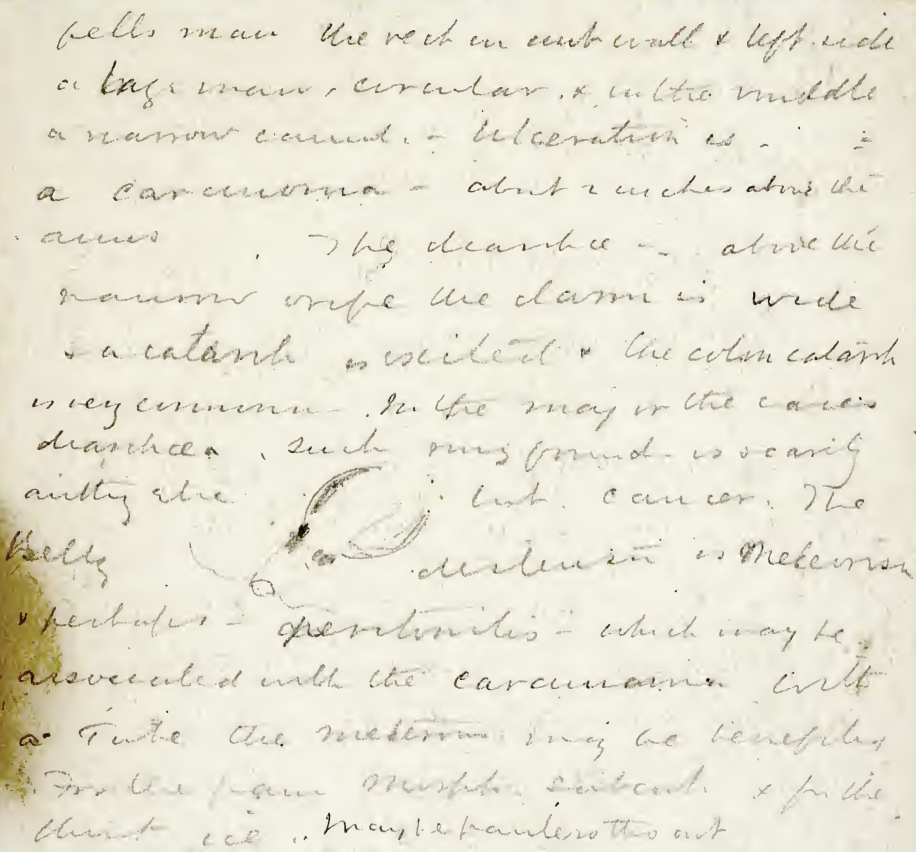 the rect on ant wall & left side
a large mass, circular, & in the middle
a narrow canal. - Ulceration is -
a carcinoma - about 2 inches above the
anus. The diarrhoe - above the
narrow the darm is wide
& a catarrh is excited & the colon catarrh
is very common. In the the
diarrhoea, such is scarily
else but cancer. The
belly distension is Meteorism
& perhaps - peritonitis - which may be
associated with the carcinoma with
a Tube the may be
For the pain Morph. subcut. & for the
ice. May be